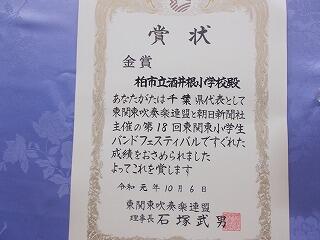 賞状
金賞
柏市立酒井根小学校殿
あなたがたは千葉県代表として
東関東吹奏楽連盟と朝日新聞社
主催の第18回東関東小学生
バンドフェスティバルですぐれた
成績をおさめられました
よってこれを賞します
令和元年10月6日
東関東吹奏楽連盟
理事長 石塚武男